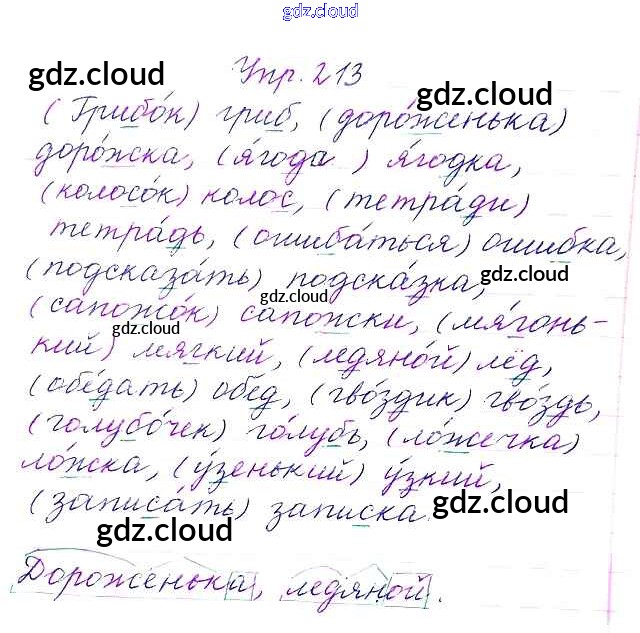 gdz.cloud
gdz.cloud Упр. 213 gdz.cloud
(Грибо́к) гриб, (доро́женька)
доро́жка, (я́года ) я́годка,
(колосо́к) колос, (тетра́ди)
тетра́дь, (ошиба́ться) ошибка,
(подсказа́ть) подска́зка, gdz.cloud
gdz.cloud
(сапожо́к) сапожки, (мя́гонь-
gdz.cloud
кий) мягкий, (ледяно́й) лёд,
(обе́дать) обед, (гво́здик) гво́здь,
(голубо́чек) го́лубь, (ло́жечка)
ло́жка, (у́зенький) у́зкий,
(записа́ть) записка.
gdz.cloud gdz.cloud
Дороженька, ледяной.